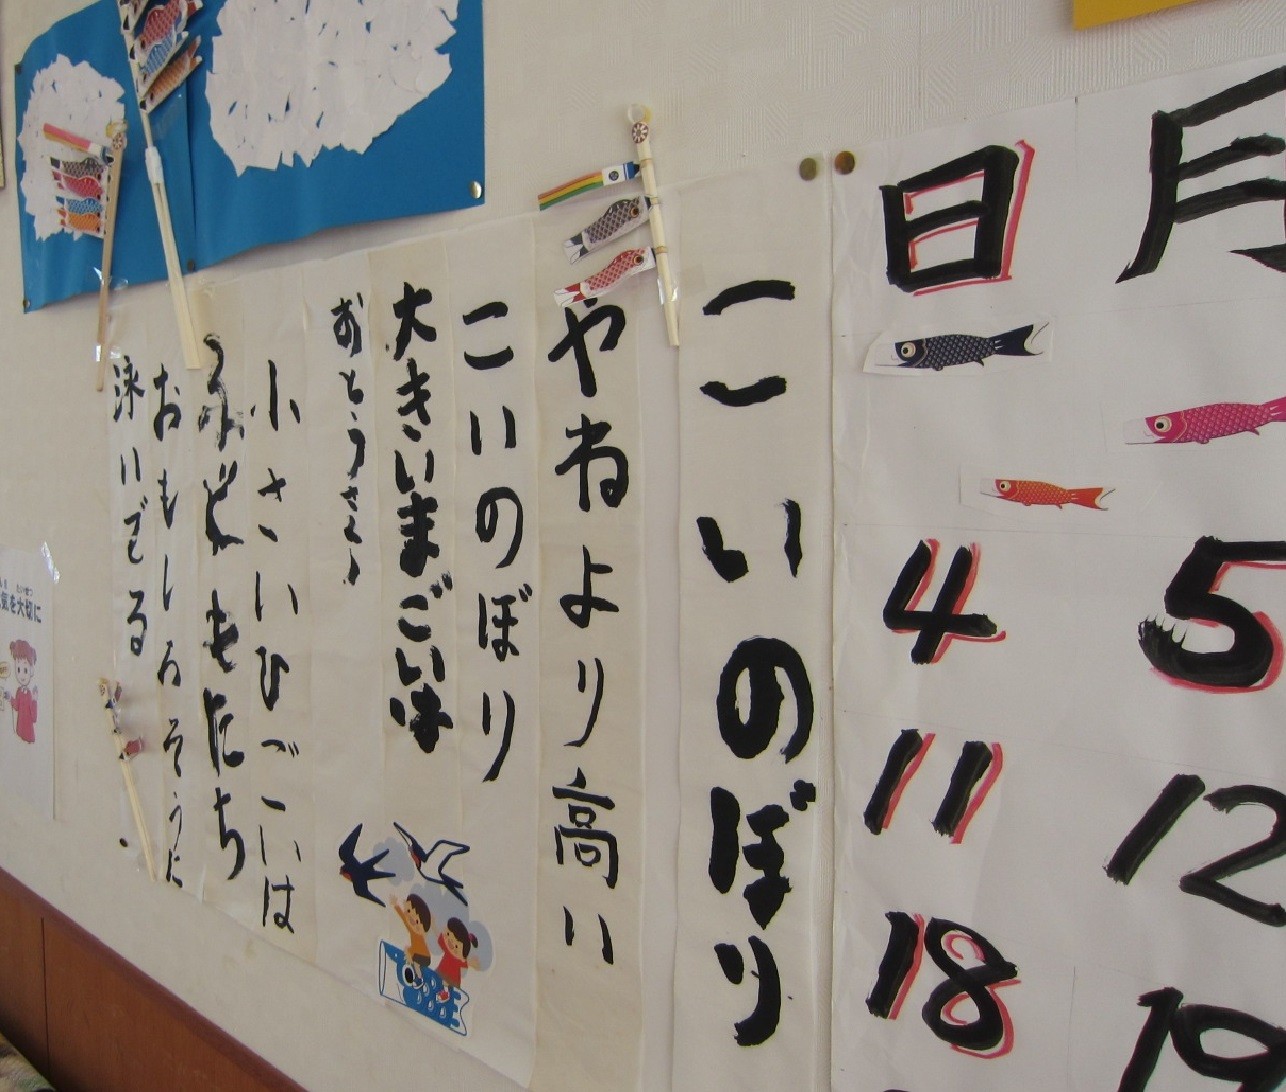 日 月
4 5
11 12
18 19
こいのぼり
やねより高い
こいのぼり
大きいまごいは
おとうさん
小さいひごいは
子どもたち
おもしろそうに
泳いでる
を大切に